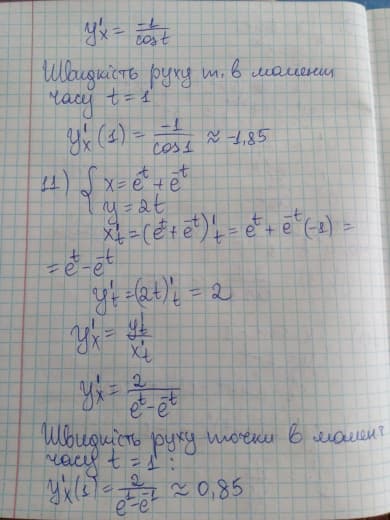 y'x = -1/cost
Швидкість руху т. в момент
часу t = 1
y'x (1) = -1/cos1 ≈ -1,85
11) { x = e^t + e^-t
y = 2t
x't = (e^t + e^-t)'t = e^t + e^-t (-1) =
= e^t - e^-t
y't = (2t)'t = 2
y'x = y't/x't
y'x = 2/(e^t - e^-t)
Швидкість руху точки в момент
часу t = 1 :
y'x(1) = 2/(e^1 - e^-1) ≈ 0,85